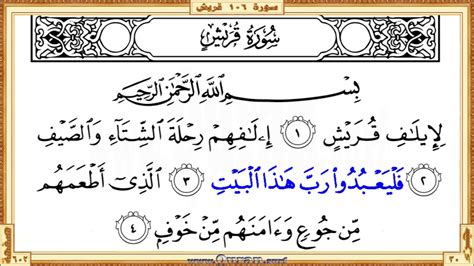 سورة ١٠٦ قريش
سُورَةُ قُرَيْشٍ
بِسْمِ اللَّهِ الرَّحْمَٰنِ الرَّحِيمِ
لِإِيلَٰفِ قُرَيْشٍ ١ إِۦلَٰفِهِمْ رِحْلَةَ الشِّتَآءِ وَالصَّيْفِ
٢ فَلْيَعْبُدُوا۟ رَبَّ هَٰذَا الْبَيْتِ ٣ الَّذِىٓ أَطْعَمَهُم
مِّن جُوعٍ وَءَامَنَهُم مِّنْ خَوْفٍۭ ٤
صفحة ٦٠٢